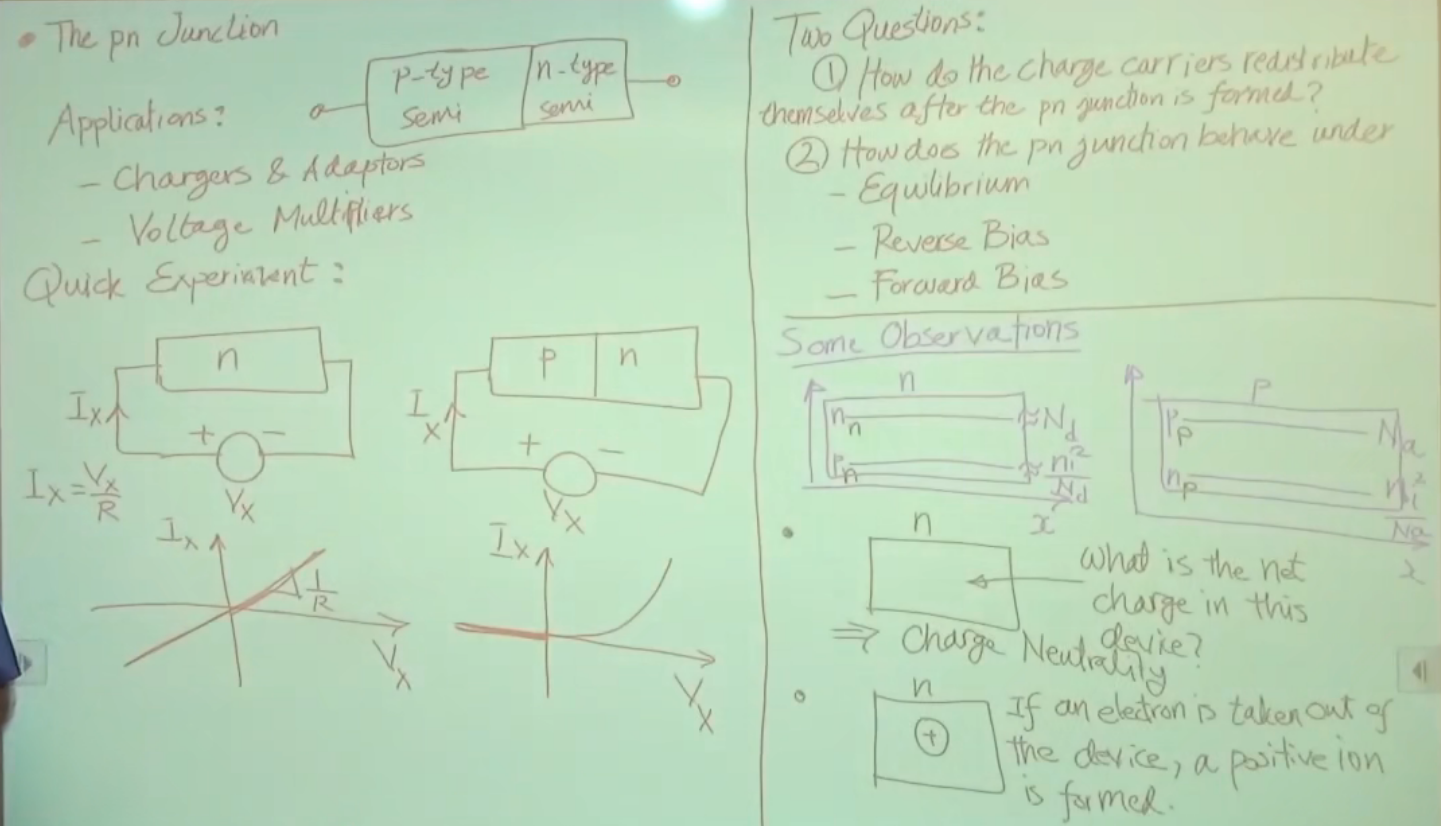 • The pn Junction
p-type
semi
n-type
semi
Applications:
– Chargers & Adaptors
– Voltage Multipliers
Quick Experiment:
n
Ix
+ –
Vx
Ix = Vx/R
Ix
1/R
Vx
p n
Ix
+ –
Vx
Ix
Vx
Two Questions:
① How do the charge carriers redistribute
themselves after the pn junction is formed?
② How does the pn junction behave under
– Equilibrium
– Reverse Bias
– Forward Bias
Some Observations
n
nn ≈ Nd
pn ≈ ni²/Nd
x
p
pp Na
np ni²/Na
x
n
What is the net
charge in this
device?
⇒ Charge Neutrality
n
+
If an electron is taken out of
the device, a positive ion
is formed.